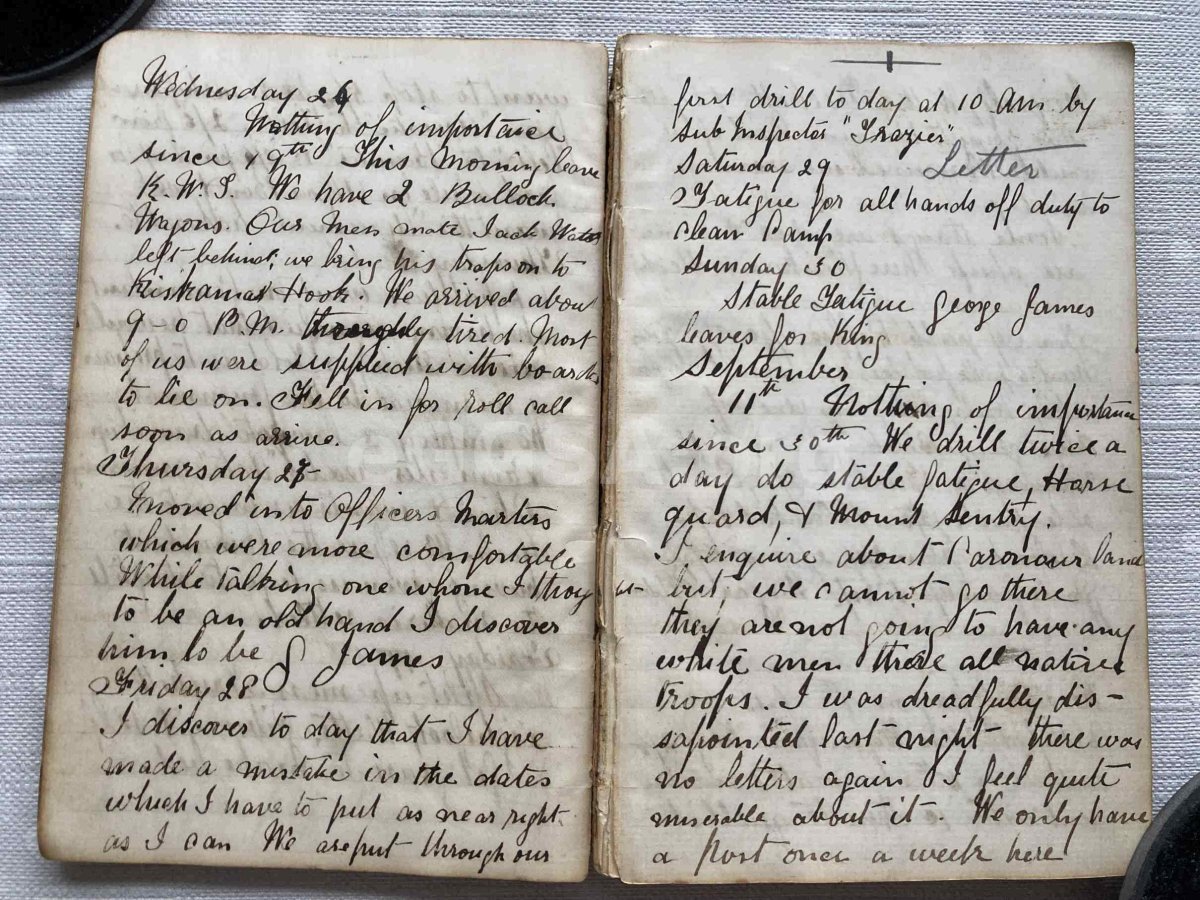 Wednesday 26
Nothing of importance
since 19th This Morning leave
K. W. T. We have 2 Bullock
Wagons. Our Mess mate Jack Waters
left behind, we bring his traps on to
Keiskamas Hook. We arrived about
9-0 P.M. thoroughly tired Most
of us were supplied with boards
to lie on. Fell in for roll call
soon as arrive.
Thursday 27
Moved into Officers Quarters
which were more comfortable
While talking one whone I thought
to be an old hand I discover
him to be G James
Friday 28
I discover to day that I have
made a mistake in the dates
which I have to put as near right
as I can We are put through our
first drill to day at 10 Am. by
Sub Inspector "Frazier"
Saturday 29 Letter
Fatigue for all hands off duty to
clean Camp
Sunday 30
Stable Fatigue George James
leaves for King
September
11th Nothing of importance
since 30th We drill twice a
day do stable fatigue, Horse
guard, & Mount Sentry.
I enquire about land
but we cannot go there
they are not going to have any
white men there all native
troops. I was dreadfully dis-
sapointed last night there was
no letters again I feel quite
miserable about it. We only have
a post once a week here